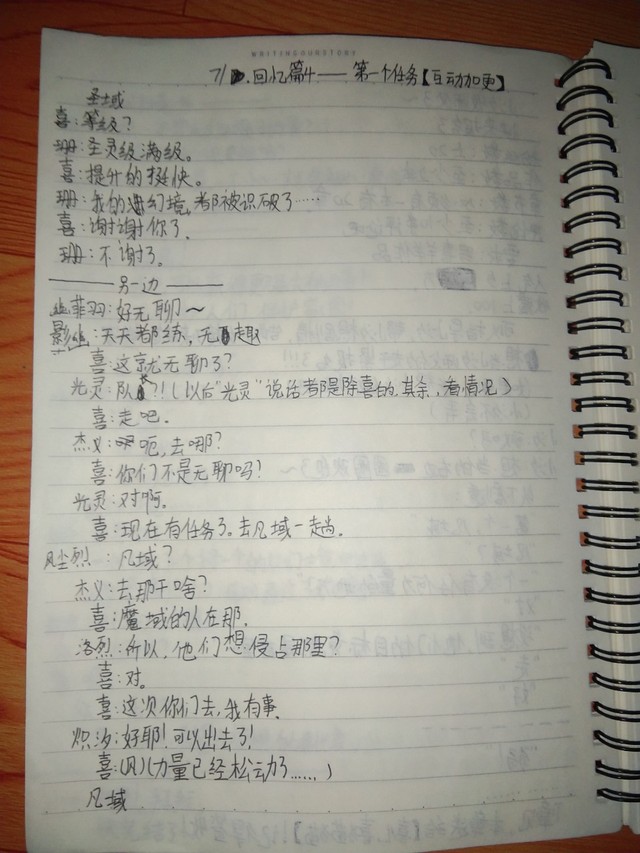 WRITINGCOURSTERS
7/ 回忆篇4——第一个任务【互动加更】
圣域
喜:等级?
珊:圣灵级满级。
喜:提升的挺快。
珊:我的幻境,都被识破了……
喜:谢谢你了。
珊:不谢了。
——另一边——
幽菲羽:好无聊~
影幽:天天都练,无趣
喜:这就无聊了?
光灵:队长?!(以后“光灵”说话都是除喜的其余,看情况)
喜:走吧。
杰义:呃,去哪?
喜:你们不是无聊吗?
光灵:对啊。
喜:现在有任务了。去凡域一趟。
风尘烈:凡域?
杰义:去那干啥?
喜:魔域的人在那。
洛烈:所以,他们想侵占那里?
喜:对。
喜:这次你们去,我有事。
炽汐:好耶!可以出去了!
喜:(风)(力量已经松动了……)
凡域